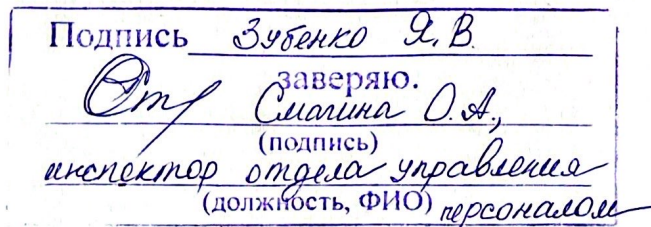 Подпись Зубенко Я.В.
заверяю.
Смагина О.А.,
(подпись)
инспектор отдела управления
(должность, ФИО) персоналом